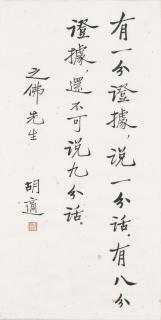 有一分證據，说一分话．有八分
證據，還不可说九分话．
之佛先生
胡適